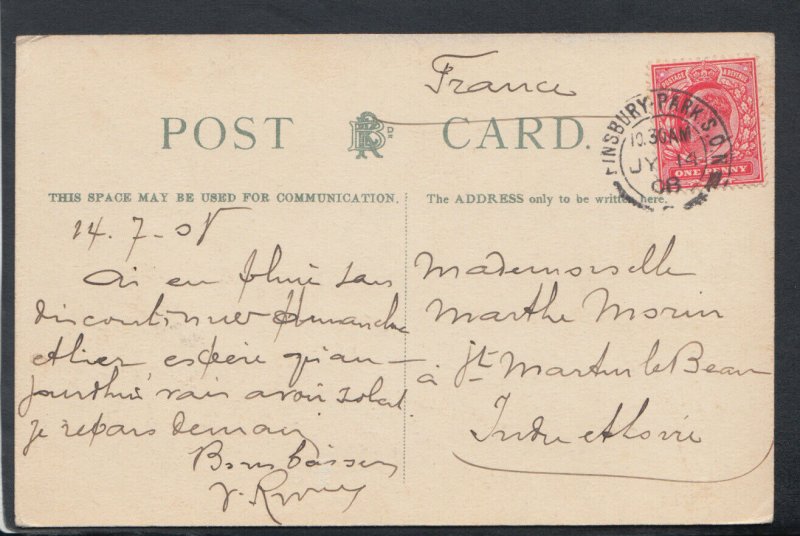 France
POST CARD.
THIS SPACE MAY BE USED FOR COMMUNICATION.
The ADDRESS only to be written here.
POSTAGE & REVENUE
ONE PENNY
FINSBURY PARK S.O. N
10.30AM
JY 14
08
14. 7 - 08
Ai eu pluie sans
discontinuer dimanche
et hier espère qu'au-
jourd'hui vais avoir soleil.
je repars demain
Bons baisers
Mademoiselle
Marthe Morin
à St Martin le Beau
Indre et Loire